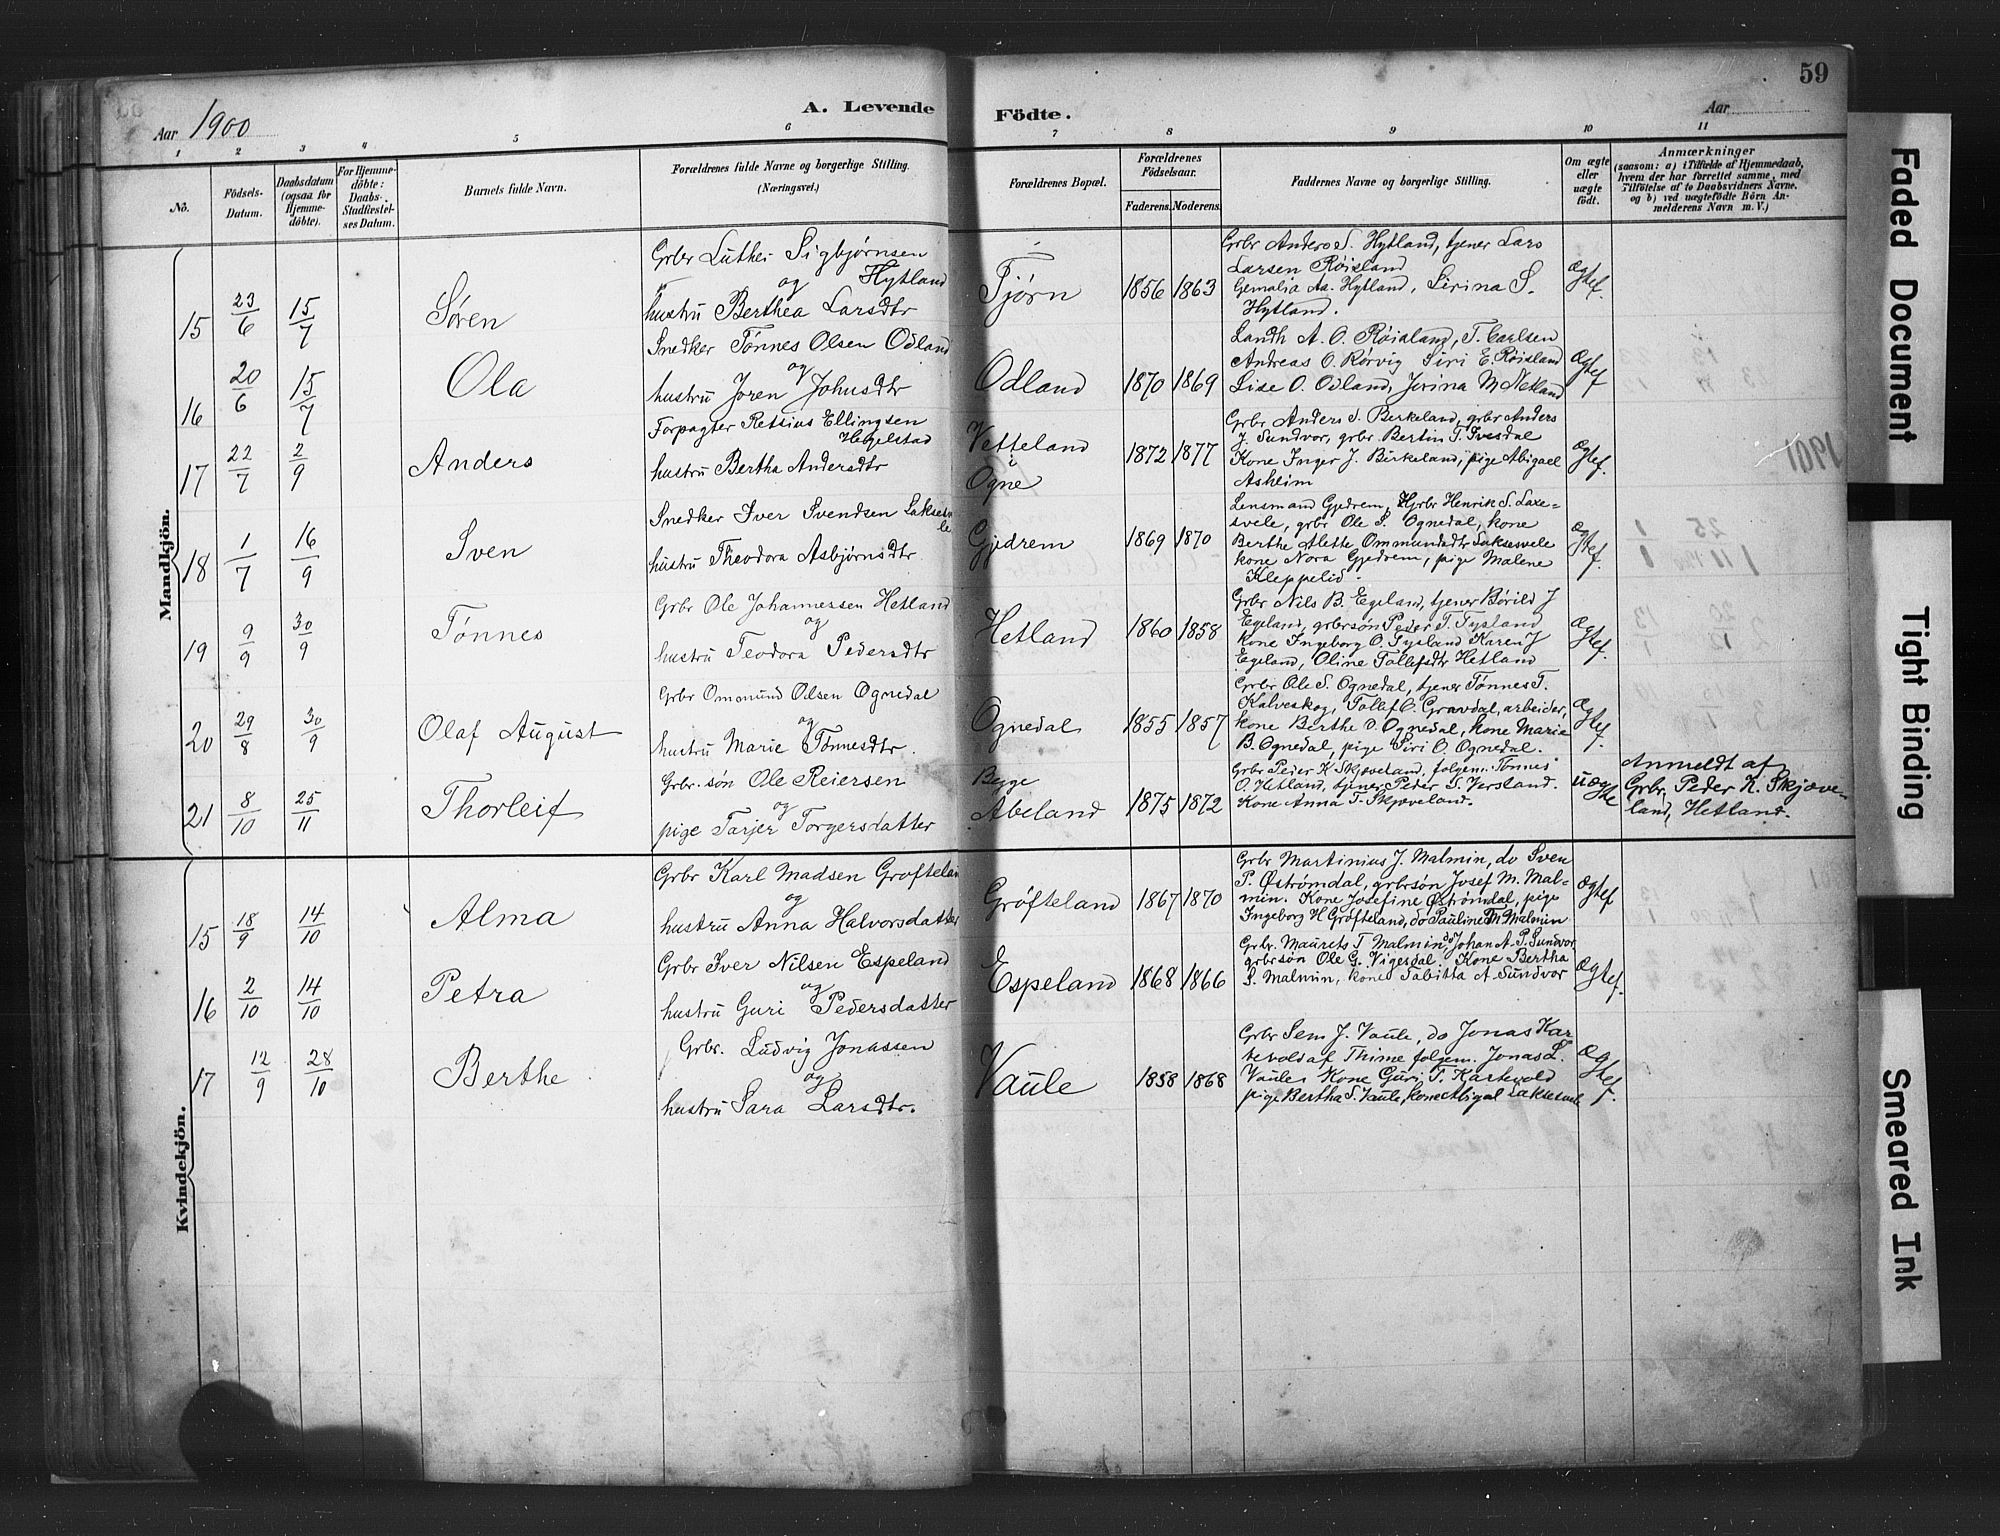 59
A. Levende Födte.
Aar 1900
Aar
1 2 3 4 5 6 7 8 9 10 11
No.
Födsels-Datum.
Daabsdatum (ogsaa for Hjemme-döbte).
For Hjemme-döbte: Daabs-Stadfæstel-ses Datum.
Barnets fulde Navn.
Forældrenes fulde Navne og borgerlige Stilling. (Næringsvei.)
Forældrenes Bopæl.
Forældrenes Födselsaar.
Faderens. Moderens.
Faddernes Navne og borgerlige Stilling.
Om ægte eller uægte födt.
Anmærkninger
(saasom: a) i Tilfælde af Hjemmedaab,
hvem der har forrettet samme, med
Tilföielse af to Daabsvidners Navne,
og b) ved uægtefödte Börn An-
melderens Navn m. V.)
Mandkjön.
15 23/6 15/7 Søren
Grbr Luther Sigbjørnsen
og Hytland
hustru Berthea Larsdtr
Tjörn 1856 1863
Grbr Anders S. Hytland, tjener Lars
Larsen Røisland
Gemalia Aa. Hytland, Sirina S.
Hytland.
Ægtef.
16 20/6 15/7 Ola
Snedker Tønnes Olsen Odland
og
hustru Joren Johnsdtr
Odland 1870 1869
Landh A. O. Røisland, T. Carlsen
Andreas O. Rørvig Siri E. Røisland
Lise O. Odland, Jorina M Netland
Ægtef
17 22/7 2/9 Anders
Forpagter Retsius Ellingsen
Hegelstad
hustru Bertha Andersdtr
Vetteland i Ogne 1872 1877
Grbr Anders S. Birkeland, grbr Anders
J. Sundvor, grbr. Bertin T. Ivesdal
Kone Inger J. Birkeland, pige Abigael
Asheim
Ægtef.
18 1/7 16/9 Sven
Snedker Iver Svendsen Laksesve
le
hustru Theodora Asbjørnsdtr
Gjedrem 1869 1870
Lensmand Gjedrem, Grbr Henrik S. Laxe-
svele, grbr Ole S. Ognedal, kone
Berthe Alette Ommundsdtr Laksesvele
kone Nora Gjedrem, pige Malene
Kleppelid.
Ægtef.
19 9/9 30/9 Tønnes
Grbr Ole Johannessen Hetland
og
hustru Teodora Pedersdtr
Hetland 1860 1858
Grbr Nils B. Egeland, tjener Børild J
Egeland, grbrsøn Peder T. Tysland
kone Ingeborg O. Tysland Karen J
Egeland, Oline Tollefsdtr Hetland
Ægtef.
20 29/8 30/9 Olaf August
Grbr Ommund Olsen Ognedal
og
hustru Marie Tønnesdtr.
Ognedal 1855 1857
Grbr Ole S. Ognedal, tjener Tønnes T.
Kalveskog, Tollef O. Gravdal, arbeider,
kone Berthe O. Ognedal, Kone Marie
B. Ognedal, pige Siri O. Ognedal.
Ægtef.
21 8/10 25/11 Thorleif
Grbr. søn Ole Reiersen
og
pige Tarjer Torgersdatter
Begge
Abeland 1875 1872
Grbr Peder K Skjæveland, folgem. Tønnes
O. Hetland, tjener Peder S. Versland.
Kone Anna T. Skjæveland.
uægte
Anmeldt af
Grbr. Peder K. Skjæve-
land, Hetland.
Kvindekjön.
15 18/9 14/10 Alma
Grbr Karl Madsen Grøfteland
og
hustru Anna Halvorsdatter
Gröfteland 1867 1870
Grbr Martinius J. Malmin, do Sven
P. Øströmdal, grbrsön Josef M. Mal-
min. Kone Josefine Øströmdal, pige
Ingeborg H Gröfteland, do Pauline M. Malmin
Ægtef
16 2/10 14/10 Petra
Grbr Iver Nilsen Espeland
og
hustru Guri Pedersdatter
Espeland 1868 1866
Grbr. Maurets T Malmin, do Johan A. P. Sundvor
grbrsön Ole G. Vigesdal. Kone Bertha
S. Malmin, kone Tabitta A Sundvor
Ægtef.
17 12/9 28/10 Berthe
Grbr. Ludvig Jonassen
og
hustru Sara Larsdtr.
Vaule 1858 1868
Grbr Sem J. Vaule, do Jonas Kar
tevold af Thime folgem. Jonas L.
Vaule, Kone Guri T. Kartevold
pige Bertha S. Vaule, kone Abigal Laksesvele
Ægtef.
1901
Faded Document
Tight Binding
Smeared Ink